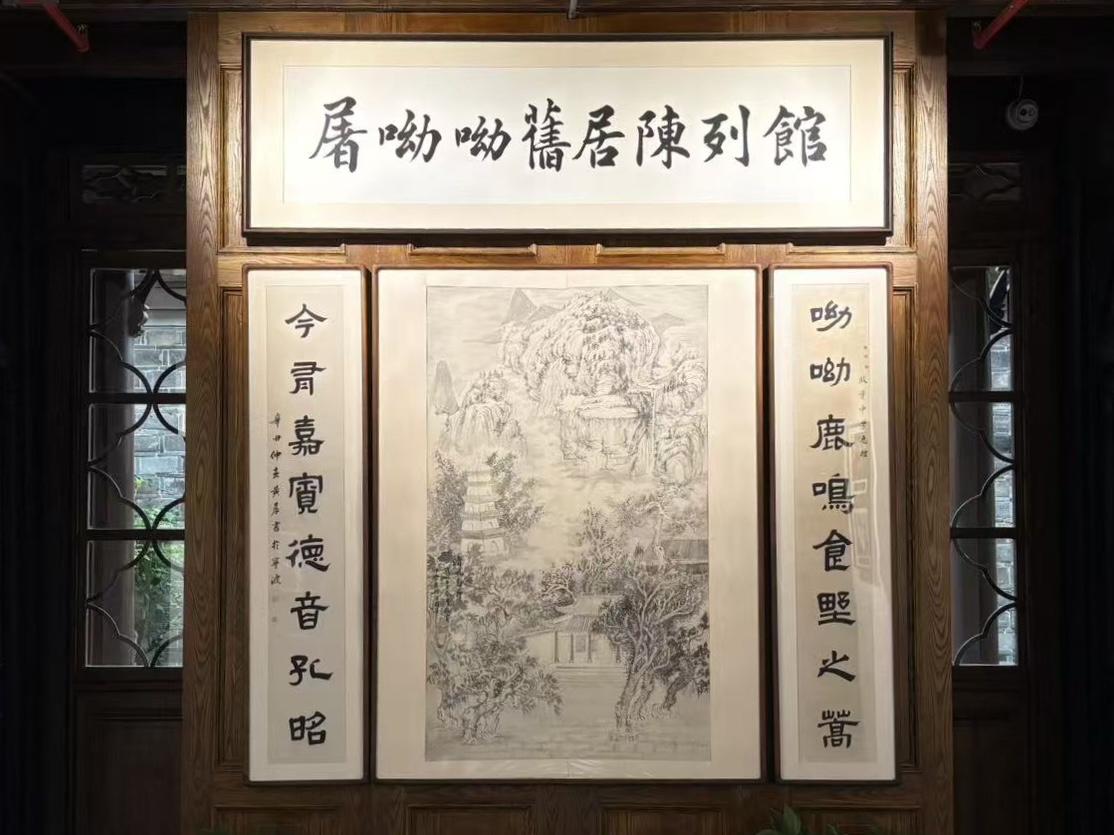 屠呦呦舊居陳列館
呦呦鹿鳴食野之蒿
今有嘉賓德音孔昭
辛丑仲春黃書於寧波